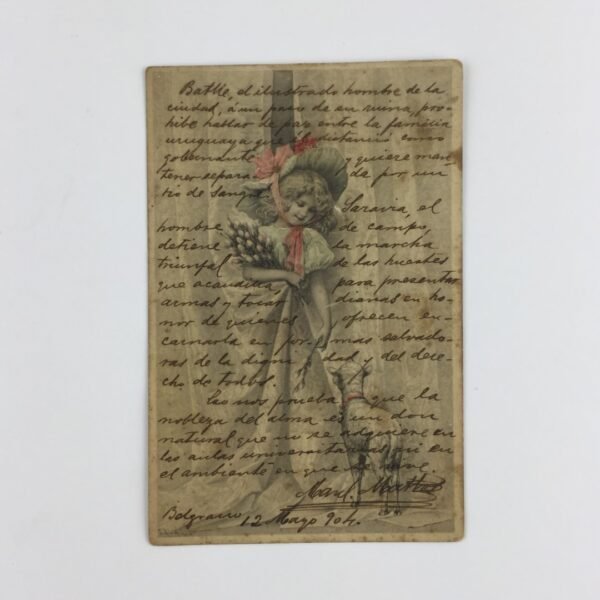 Batlle, el ilustrado hombre de la
ciudad, á un paso de su ruina, pro-
hibe hablar de paz entre la familia
uruguaya que él distancia como
gobernante y quiere man-
tener separada por un
rio de sangre.
Saravia, el
hombre de campo,
detiene la marcha
triunfal de las huestes
que acaudilla, para presentar
armas y tocar dianas en ho-
nor de quienes ofrecen en-
carnarla en formas salvado-
ras de la dignidad y del dere-
cho de todos.
Eso nos prueba que la
nobleza del alma es un don
natural que no se adquiere en
las aulas universitarias ni en
el ambiente en que se vive.
Belgrano, 12 Mayo 904.